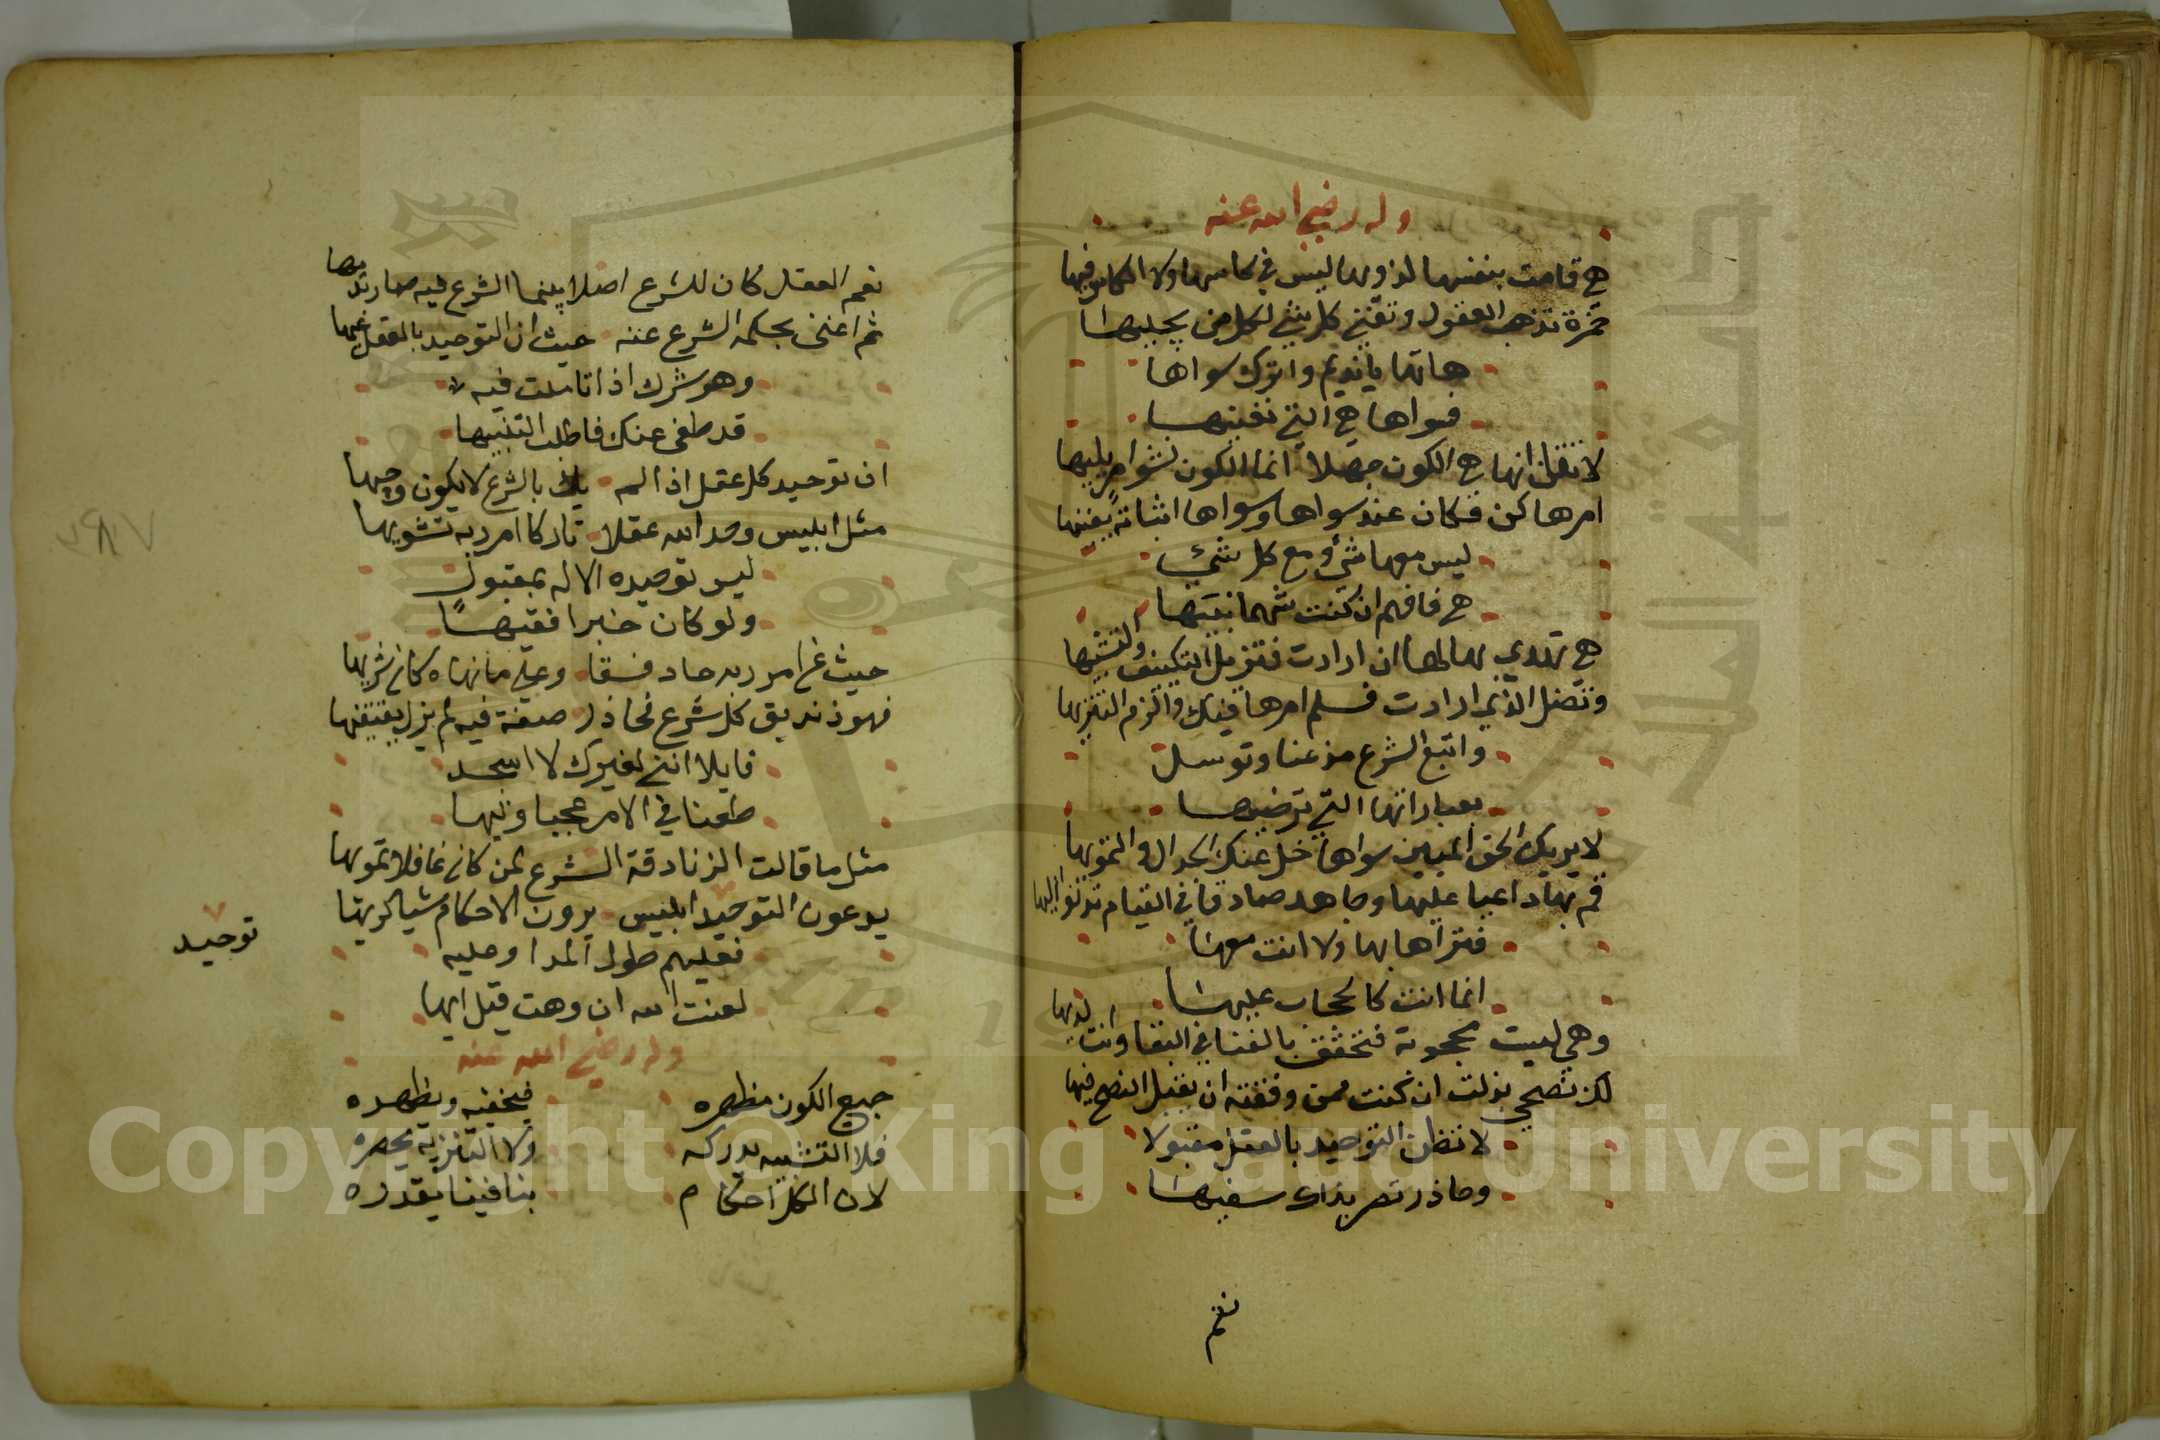 وله رضي الله عنه
هي قامت بنفسها لذويها ليس في كاسها ولا الكاس فيها
خمرة تذهب العقول وتفني كل شئ لكل من يجليها
هاتها يا نديم واترك سواها
فسواها هي التي تفنيها
لا تقل انها هي الكون جهلا انما الكون نشو امر يليها
امرها كن فكان عند سواها وسواها اثباته ينفيها
ليس معها شئ ومع كل شئ
هي فافهم ان كنت شهما نبيها
هي تهدي بها لها ان ارادت فتزيل التكييف والتشبيها
وتضل الذي ارادت فسلم امرها فيك والزم التنزيها
واتبع الشرع مذعنا وتوسل
بعباراتها التي ترضيها
لا يريك الحق المبين سواها خل عنك الجدال والتمويها
قم بها داعيا عليها وجاهد صادقا في القيام تدنو اليها
فتراها بها ولا انت معها
انما انت كالحجاب عليها
وهي ليست محجوبة فتحقق بالفنا في البقا وانت لديها
لك نصحي بذلت ان كنت ممن وفقته ان يقبل النصح فيها
لا تظن التوحيد بالعقل مقبولا
وحاذر تصر بذاك سفيها
نعم
نعم العقل كان للشرع اصلا بينما الشرع فيه صار بديها
ثم اغنى بحكمه الشرع عنه حيث ان التوحيد بالعقل عيها
وهو شرك اذا تاملت فيه
قد طغى عنك فاطلب التنبيها
ان توحيد كل عقل اذا لم يك بالشرع لا يكون وجيها
مثل ابليس وحد الله عقلا تاركا امر ربه تشويها
ليس توحيده الاله بمقبول
ولو كان خبرا فقيها
حيث عن امر ربه حاد فسقا وعلى ما نهاه كان شريها
فهو زنديق كل شرع فحاذر صفة فيه لم يزل يقتفيها
قايلا انني لغيرك لا اسجد
طعنا في الامر عجبا وتيها
مثل ما قالت الزنادقة الشرع لمن كان غافلا تمويها
يدعون التوحيد ابليس يرون الاحكام شيا كريها
توحيد
فعليهم طول المدا وعليه
لعنت الله ان وهت قيل ايها
وله رضي الله عنه
جميع الكون مظهره فيخفيه ويظهره
فلا التشبيه يدركه ولا التنزيه يحصره
لان الكل احكام بنا فينا يقدره
Copyright © King Saud University